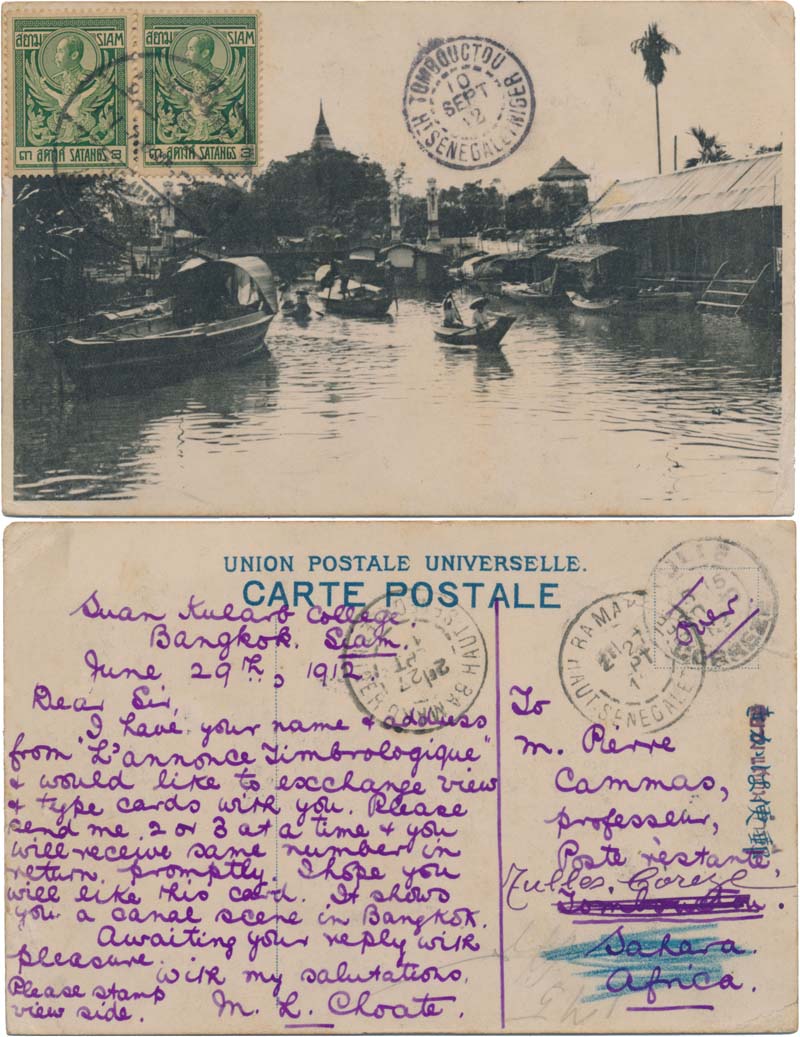 สยาม SIAM
สยาม SIAM
๓ สตางค์ SATANGS 3
๓ สตางค์ SATANGS 3
TOMBOUCTOU
10
SEPT
12
HT SENEGAL ET NIGER
UNION POSTALE UNIVERSELLE.
CARTE POSTALE
Suan Kularb College.
Bangkok. Siam.
June 29th, 1912.
Dear Sir,
I have your name & address
from "L'annonce Timbrologique"
& would like to exchange view
& type cards with you. Please
send me 2 or 3 at a time & you
will receive same number in
return promptly. I hope you
will like this card. It shows
you a canal scene in Bangkok.
Awaiting your reply with
pleasure.
With my salutations.
Please stamp
view side.
M. L. Choate.
Over
To
M. Pierre
Cammas,
professeur,
Poste réstante,
Tulles, Corèze
Tombouctou.
Sahara.
Africa.